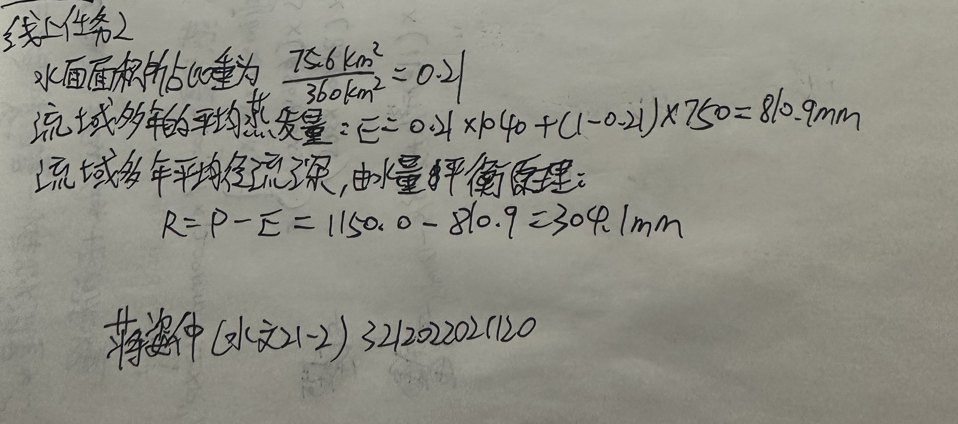 线上任务2
水面面积所占比重为 75.6km²/360km² = 0.21
流域多年的平均蒸发量：E = 0.21×1040+(1-0.21)×750=810.9mm
流域多年平均径流深，由水量平衡原理：
R=P-E=1150.0-810.9=304.1mm
蒋 仲(水文21-2) 3212022021120